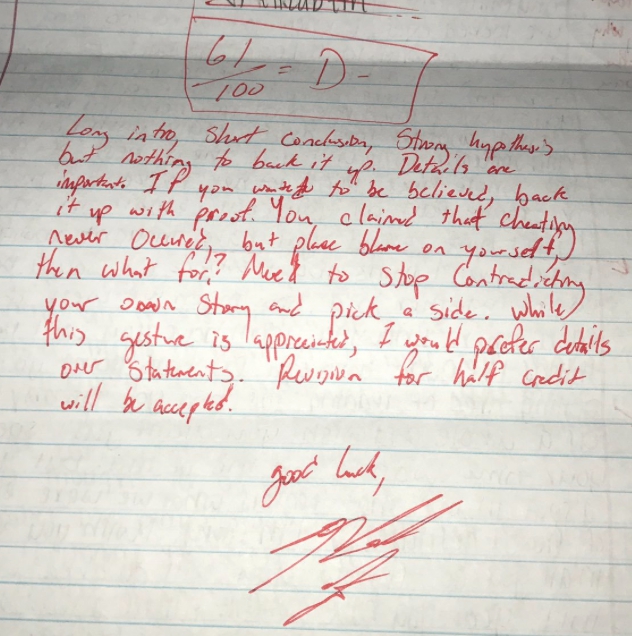 61
100 = D-
Long intro, short conclusion, strong hypothesis
but nothing to back it up. Details are
important. If you wanted to be believed, back
it up with proof. You claimed that cheating
never occured, but place blame on yourself,
then what for? Need to stop contradicting
your own story and pick a side. While
this gesture is appreciated, I would prefer details
over statements. Revision for half credit
will be accepted.
good luck,